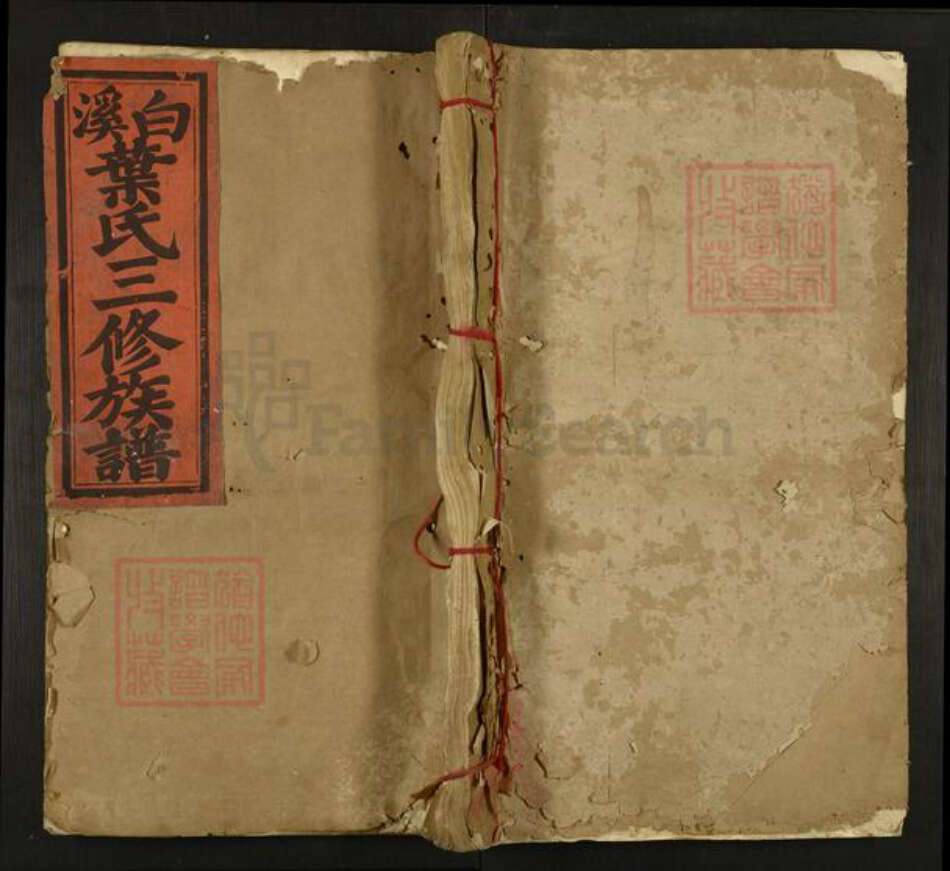 白溪
葉氏三修族譜
猶他家
譜學會
收藏
FamilySearch
猶他家
譜學會
收藏